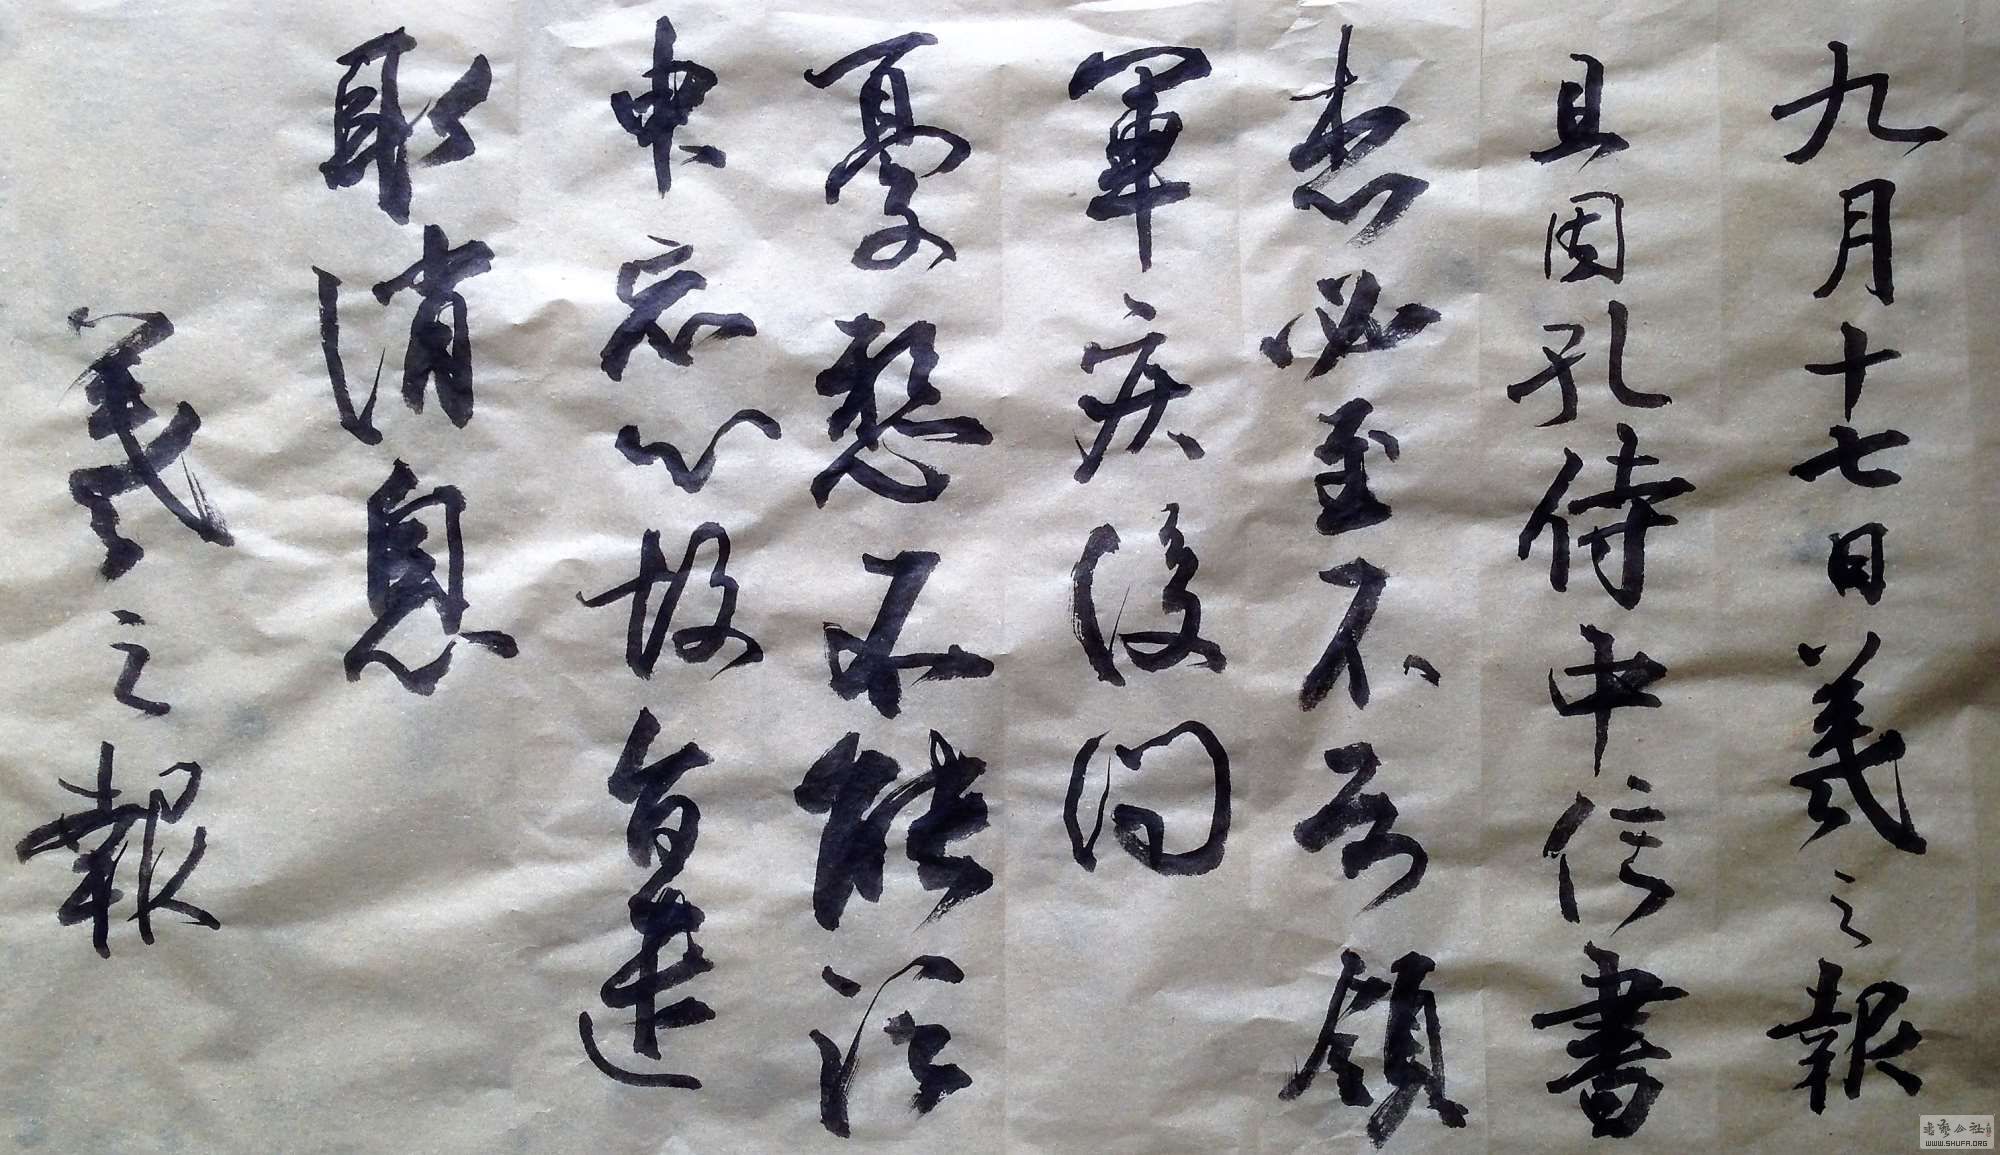 九月十七日羲之報
且因孔侍中信書
想必至不知領
軍疾後問
憂懸不能須
臾忘心故旨遣
取消息
羲之報
書藝公社
WWW.SHUFA.ORG